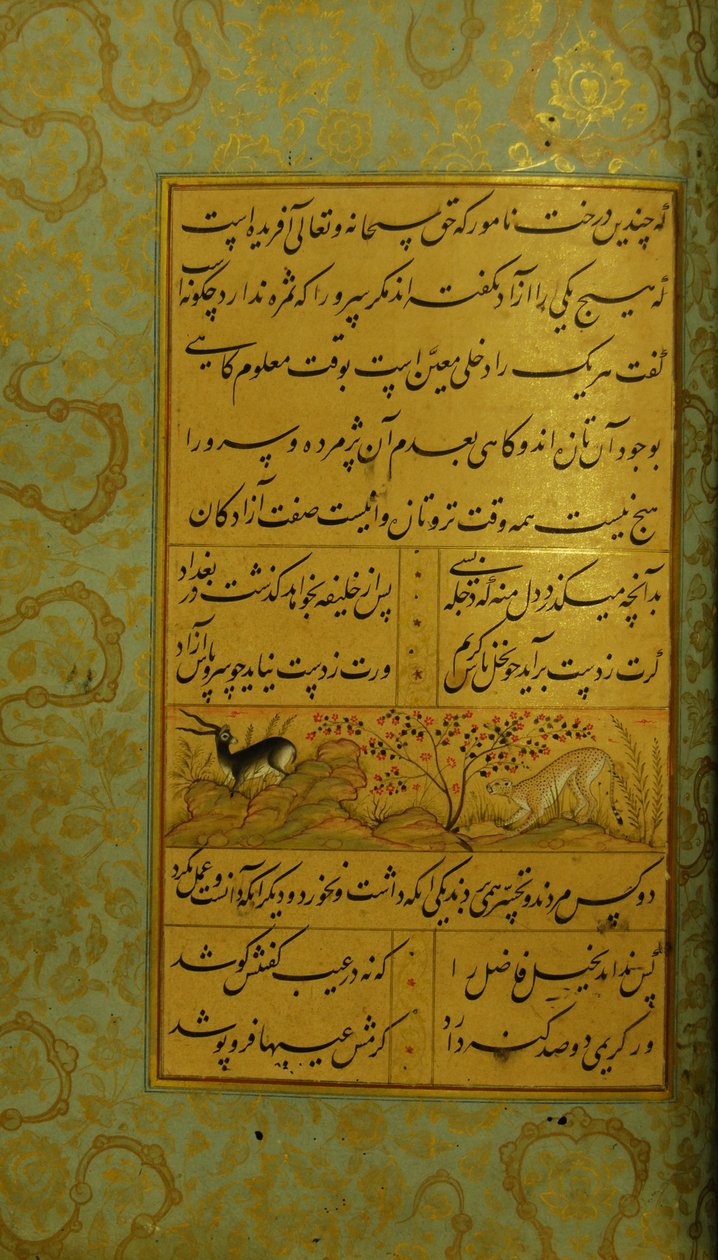 که چندین درخت نامور که حق سبحانه وتعالی آفریده است
که هیچ یکی را آزاد نگفته اند مگر سرو را که ثمره ندارد چگونه است
گفت هر یک را دخلی معیّن است بوقت معلوم گاهی
بوجود آن تازه اند و گاهی بعدم آن پژمرده و سرو را
هیچ نیست همه وقت تر و تازه و اینست صفت آزادگان
بدآنچه میگذرد دل منه که دجله بسی
پس از خلیفه بخواهد گذشت در بغداد
گرت ز دست برآید چو نخل باش کریم
ورت ز دست نیاید چو سرو باش آزاد
دو کس مردند و تحسّر همی بردند یکی آنکه داشت و نخورد و دیگر آنکه دانست و عمل نکرد
کس نداند بخیل فاضل را
که نه در عیب گفتنش کوشد
ور کریمی دو صد گنه دارد
کرمش عیبها فرو پوشد